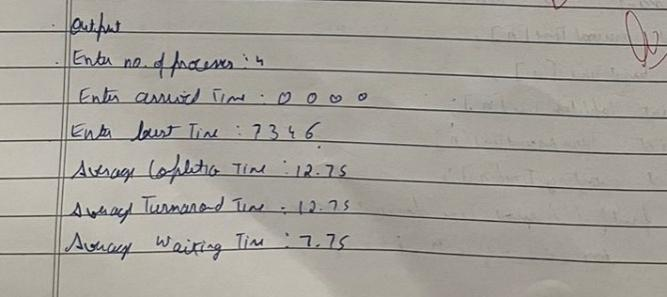 Output
Enter no. of processes : 4
Enter arrival Time : 0 0 0 0
Enter burst Time : 7 3 4 6
Average Completion Time : 12.75
Average Turnaround Time : 12.75
Average Waiting Time : 7.75